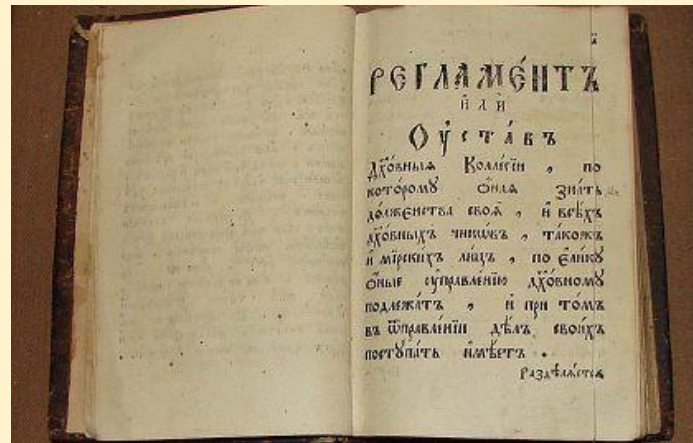 РЕГЛАМЕ́НТЪ
И҆ЛЍ
Оу҆ста́въ
Дх҃о́вныѧ Колле́гїи , по
которому ѻ҆наѧ зна́ть
до́лженства своѧ̀ , и҆ всѣ́хъ
дх҃о́вныхъ чино́въ , та́кожъ
и҆ мїрски́хъ ли́цъ , по є҆ли́кѹ
ѻ҆ные оу҆правле́нїю дх҃о́вному
подлежа́тъ , и҆ при то́мъ
въ ѿправле́нїи дѣ́лъ свои́хъ
поступа́ть и҆мѣ́етъ .
Раздѣлѧ́етсѧ